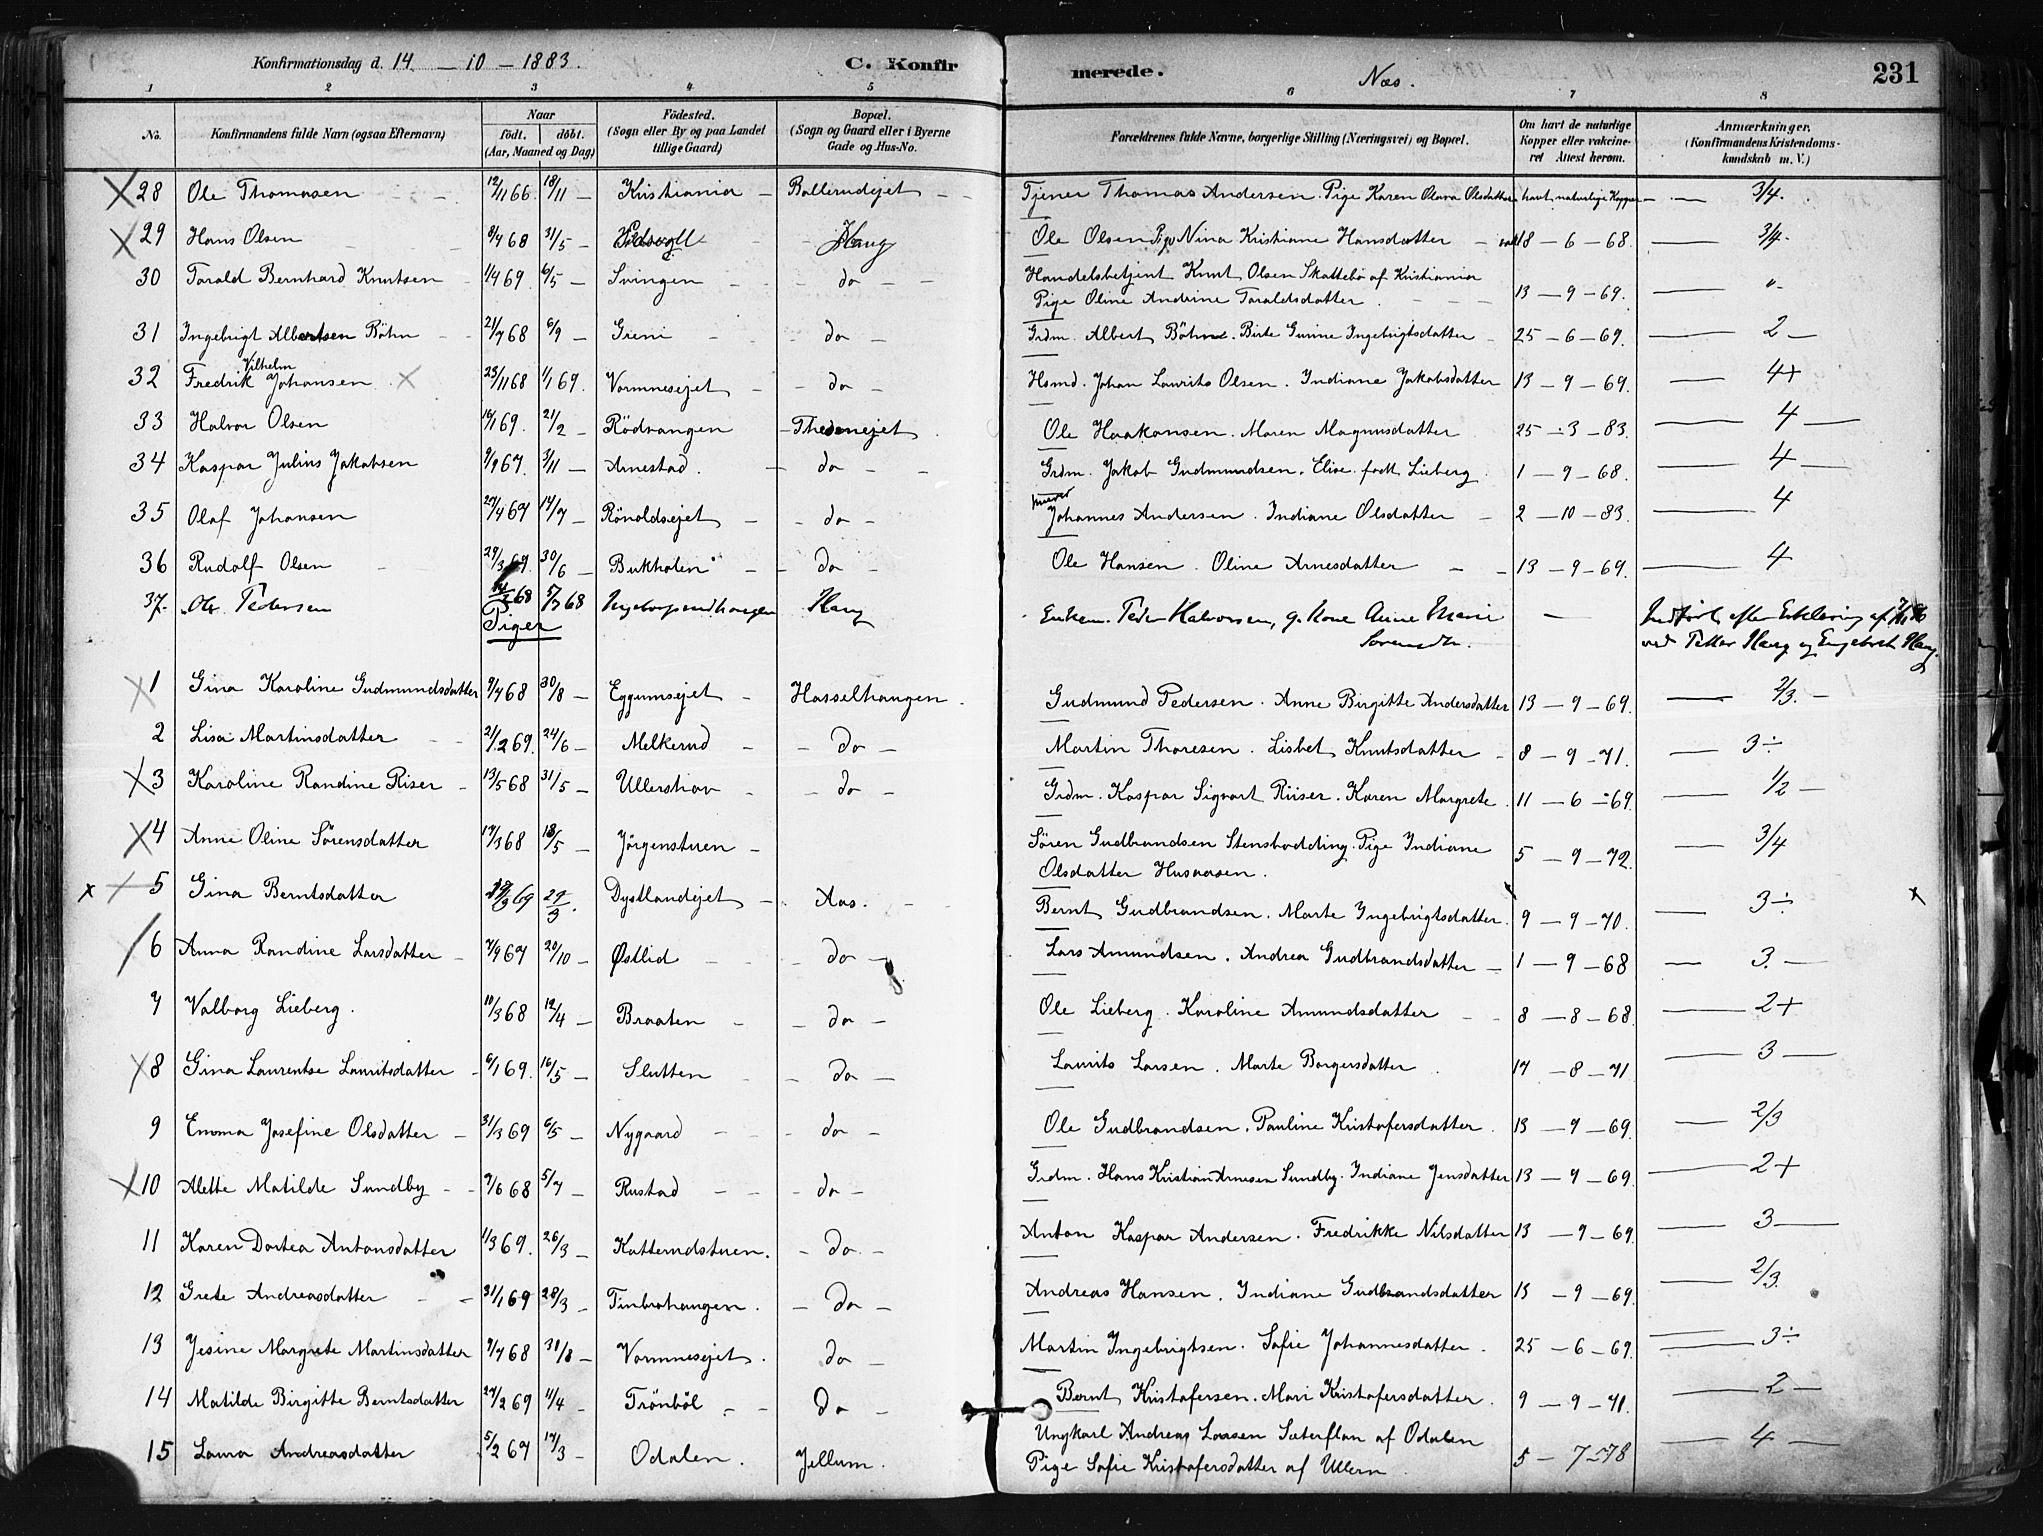 Konfirmationsdag d. 14 - 10 - 1883.
C. Konfirmerede.
Næs.
231
1 2 3 4 5 6 7 8
No.
Konfirmandens fulde Navn (ogsaa Efternavn)
Naar
födt. döbt.
(Aar, Maaned og Dag)
Födested.
(Sogn eller By og paa Landet
tillige Gaard)
Bopæl.
(Sogn og Gaard eller i Byerne
Gade og Hus-No.
Forældrenes fulde Navne, borgerlige Stilling (Næringsvei) og Bopæl.
Om havt de naturlige
Kopper eller vakcine-
ret Attest herom.
Anmærkninger.
(Konfirmandens Kristendoms-
kundskab m. V.)
28 Ole Thomasen 12/11 66 18/11 - Kristiania - Ballerudejet - Tjener Thomas Andersen. Pige Karen Olava Olsdatter havt naturlige Kopper - 3/4.
29 Hans Olsen 8/4 68 31/5 - Eidsvoll - Haug Ole Olsen Pige Nina Kristiane Hansdatter - 18 - 6 - 68. - 3/4.
30 Tarald Bernhard Knutsen 1/4 69. 6/5 - Svingen - do - Handelsbetjent Knut Olsen Skattebö af Kristiania
Pige Oline Andrine Taraldsdatter. 13 - 9 - 69. - "
31 Ingebrigt Albertsen Böhn 21/7 68 6/9 - Greni - do - Grdm. Albert Böhn. Birte Gurine Ingebrigtsdatter 25 - 6 - 69. - 2 -
32 Fredrik Vilhelm Johansen 23/11 68 1/1 69. Vormnesejet - do - Hsmd. Johan Laurits Olsen. Indiane Jakobsdatter 13 - 9 - 69. - 4+
33 Halvor Olsen 16/1 69. 21/2 - Rödvangen - Thesenejet. Ole Haakansen. Maren Magnusdatter 25 - 3 - 83. - 4 -
34 Kaspar Julius Jakobsen 9/9 67. 3/11 - Arnestad. - do - Grdm. Jakob Gudmundsen. Elise født Lieberg 1 - 9 - 68. - 4 -
35 Olaf Johansen 27/4 67 14/7 - Rönoldsejet - do - Johannes Andersen. Indiane Olsdatter - 2 - 10 - 83. - 4
36 Rudolf Olsen 29/3 69. 30/6 - Bukholen - do - Ole Hansen. Oline Arnesdatter - 13 - 9 - 69. - 4
37. Ole Pedersen 68 5/7 68 Ingeborgrudhaugen Haug Enkem. Peder Halvorsen, g. Kone Anne Marie
Sörensdtr. - Indfört efter Erklæring af
ved Petter Haug og Engebret Haug.
Piger
1 Gina Karoline Gudmundsdatter 9/7 68 30/8 - Eggumsejet - Hasselhaugen. Gudmund Pedersen. Anne Birgitte Andersdatter 13 - 9 - 69. - 2/3. -
2 Lisa Martinsdatter 21/2 69. 24/6 - Melkerud - do - Martin Thoresen. Lisbet Knutsdatter - 8 - 9 - 71. - 3÷
3 Karoline Randine Riser - 13/5 68 31/5 - Ullershav - do - Grdm. Kaspar Sigvart Riiser. Karen Margrete. 11 - 6 - 69. - 1/2 -
4 Anne Oline Sörensdatter 17/3 68 18/5 - Jörgenstuen - Sören Gudbrandsen Stensbodding. Pige Indiane
Olsdatter Husaasen. 5 - 9 - 72. - 3/4
5 Gina Berntsdatter 69 29/3. Dystlandejet - Aas. - Bernt Gudbrandsen. Marte Ingebrigtsdatter. 9 - 9 - 70. - 3÷
6 Anna Randine Larsdatter - 7/9 67 20/10 - Østlid - do - Lars Amundsen. Andrea Gudbrandsdatter - 1 - 9 - 68 - 3. -
7 Valborg Lieberg. 10/3 68 12/4 - Braaten - do - Ole Lieberg. Karoline Amundsdatter - 8 - 8 - 68. - 2+
8 Gina Laurentse Lauritsdatter - 6/1 69. 16/5 - Slutten - do - Laurits Larsen. Marte Borgersdatter. 17 - 8 - 71 - 3 -
9 Emma Josefine Olsdatter - 31/3 69 6/5 - Nygaard - do - Ole Gudbrandsen. Pauline Kristofersdatter. 13 - 9 - 69. - 2/3
10 Alette Matilde Sundby - 7/6 68 5/7 - Rustad - do - Grdm. Hans Kristian Arnesen Sundby. Indiane Jensdatter 13 - 9 - 69. - 2+
11 Karen Dortea Antonsdatter 1/3 69. 26/3 - Katterudstuen. - do - Anton Kaspar Andersen. Fredrikke Nilsdatter 13 - 9 - 69. - 3 -
12 Grete Andreasdatter - 31/1 69 28/3 - Finbrahaugen. - do - Andreas Hansen. Indiane Gudbrandsdatter 13 - 9 - 69. - 2/3.
13 Jesine Margrete Martinsdatter 9/7 68 30/8 - Vormnesejet. do - Martin Ingebrigtsen. Sofie Johannesdatter. 25 - 6 - 69. - 3÷
14 Matilde Birgitte Berntsdatter 27/2 69 11/4 - Trönböl - do - Bernt Kristofersen. Mari Kristofersdatter. 9 - 9 - 71. - 2 -
15 Laura Andreasdatter 5/2 67 17/3 - Odalen. Jellum. Ungkarl Andreas Larsen Sæterflan af Odalen
Pige Sofie Kristofersdatter af Ullern. 5 - 7 - 78 - 4 -